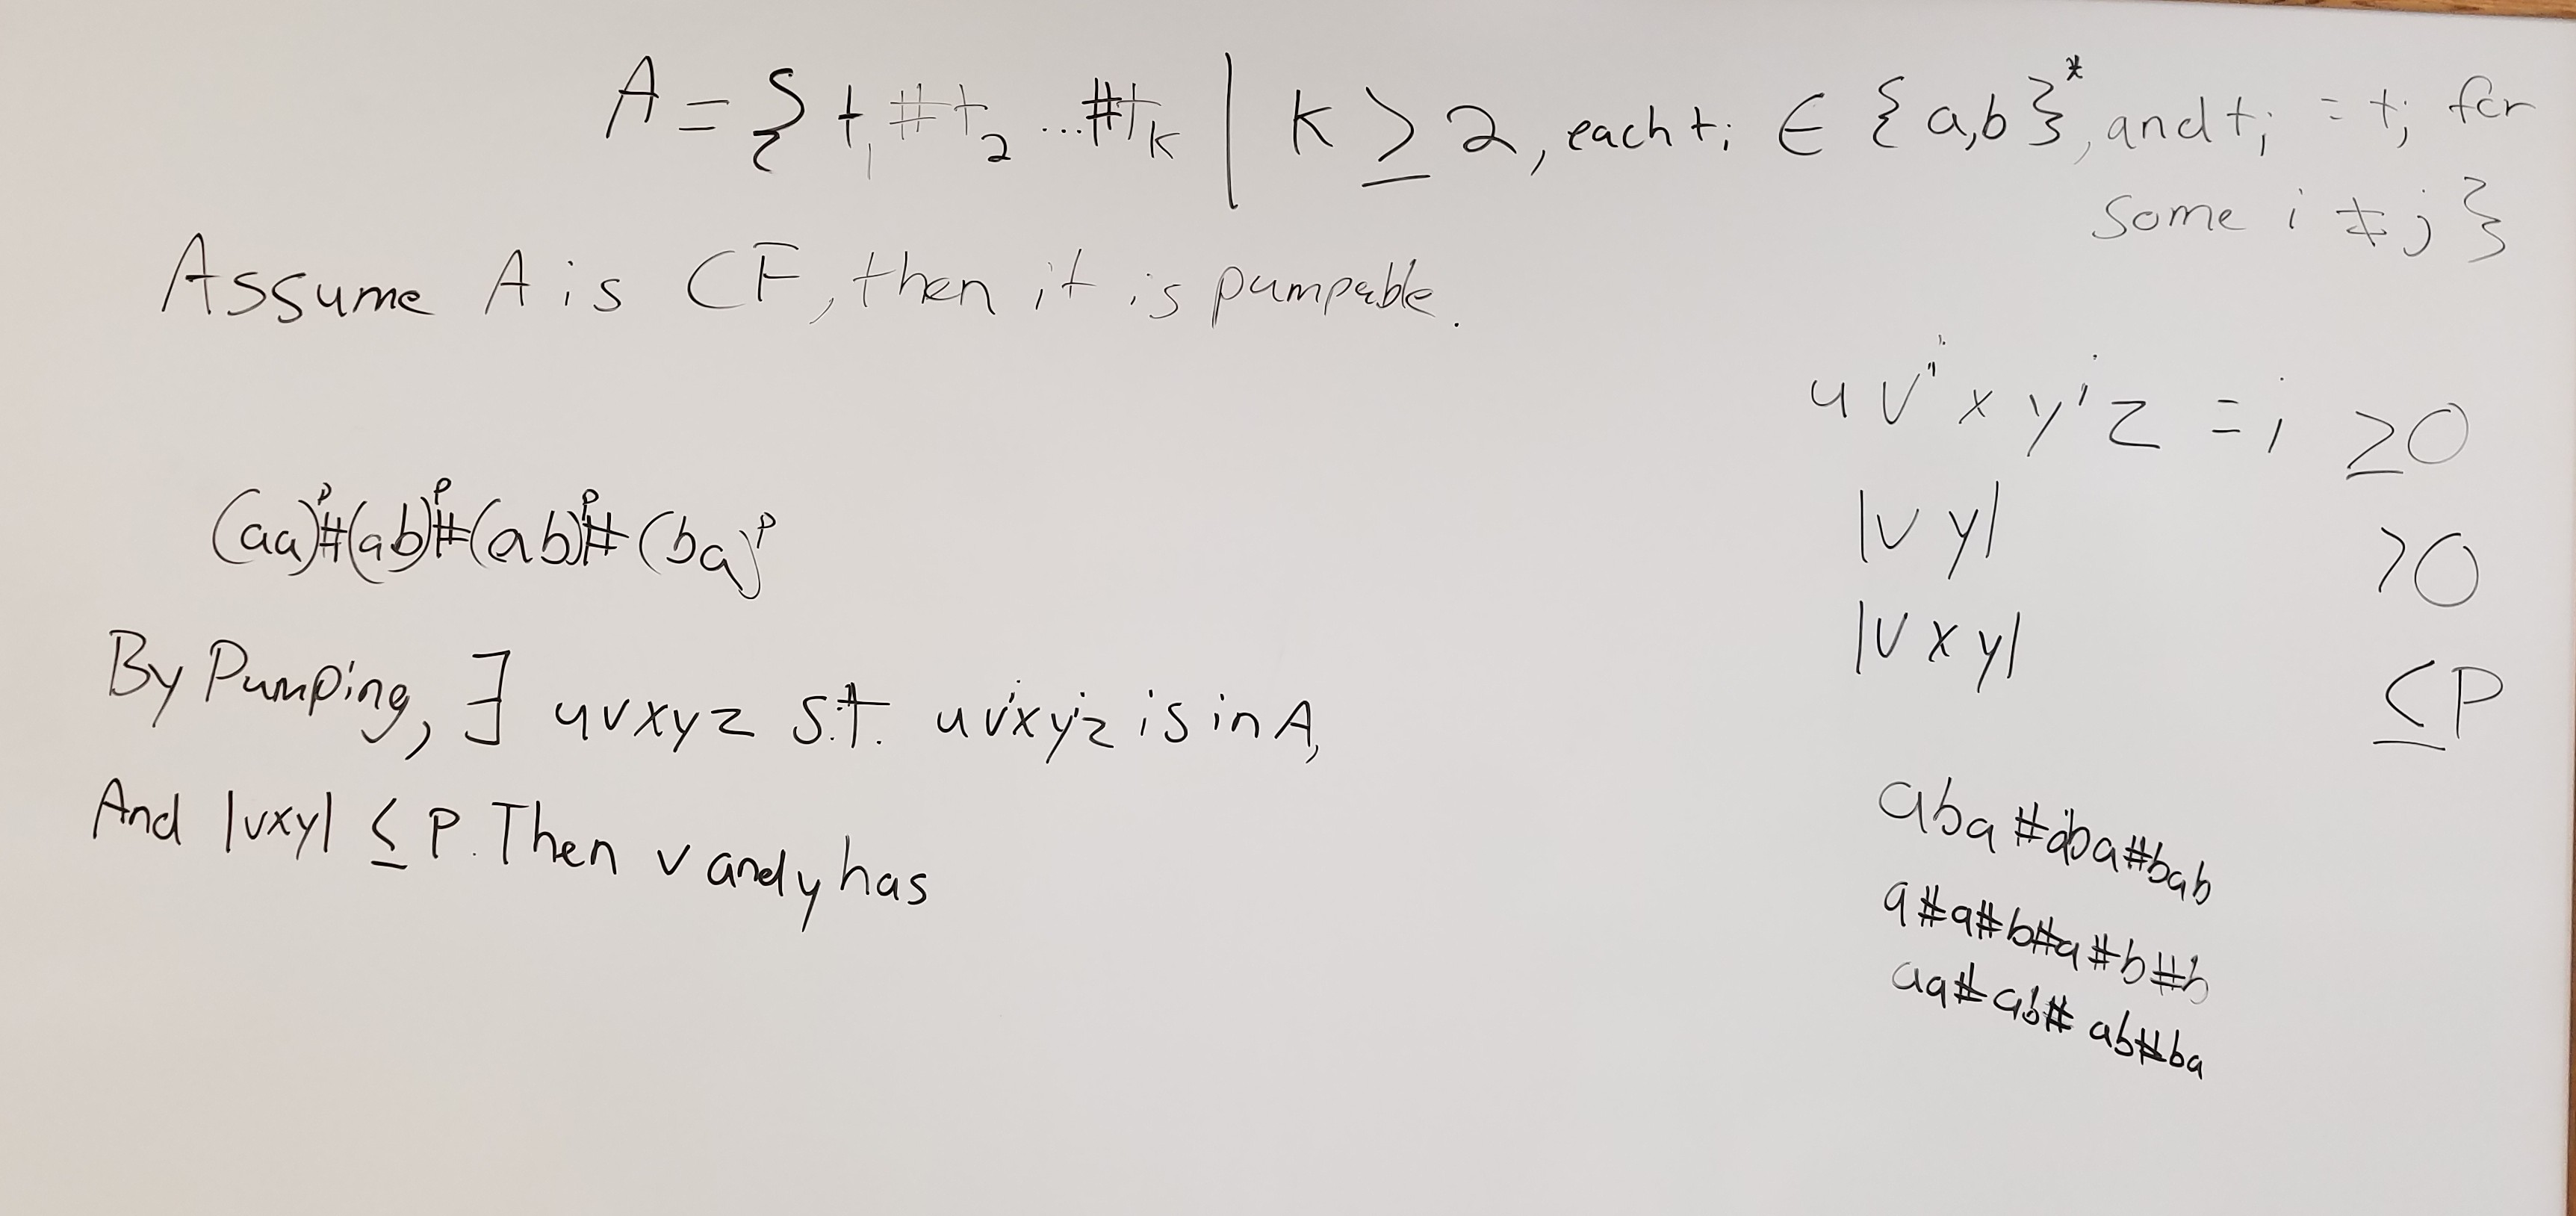 A = { t₁#t₂...#tₖ | K ≥ 2, each tᵢ ∈ {a,b}*, and tᵢ = tⱼ for
some i ≠ j }
Assume A is CF, then it is pumpable.
uvⁱxyⁱz = i ≥0
|vy| >0
|vxy| ≤P
(aa)ᵖ#(ab)ᵖ#(ab)ᵖ#(ba)ᵖ
By Pumping, ∃ uvxyz s.t. uvⁱxyⁱz is in A,
And |vxy| ≤ P. Then v and y has
aba#aba#bab
a#a#b#a#b#b
aa#ab#ab#ba